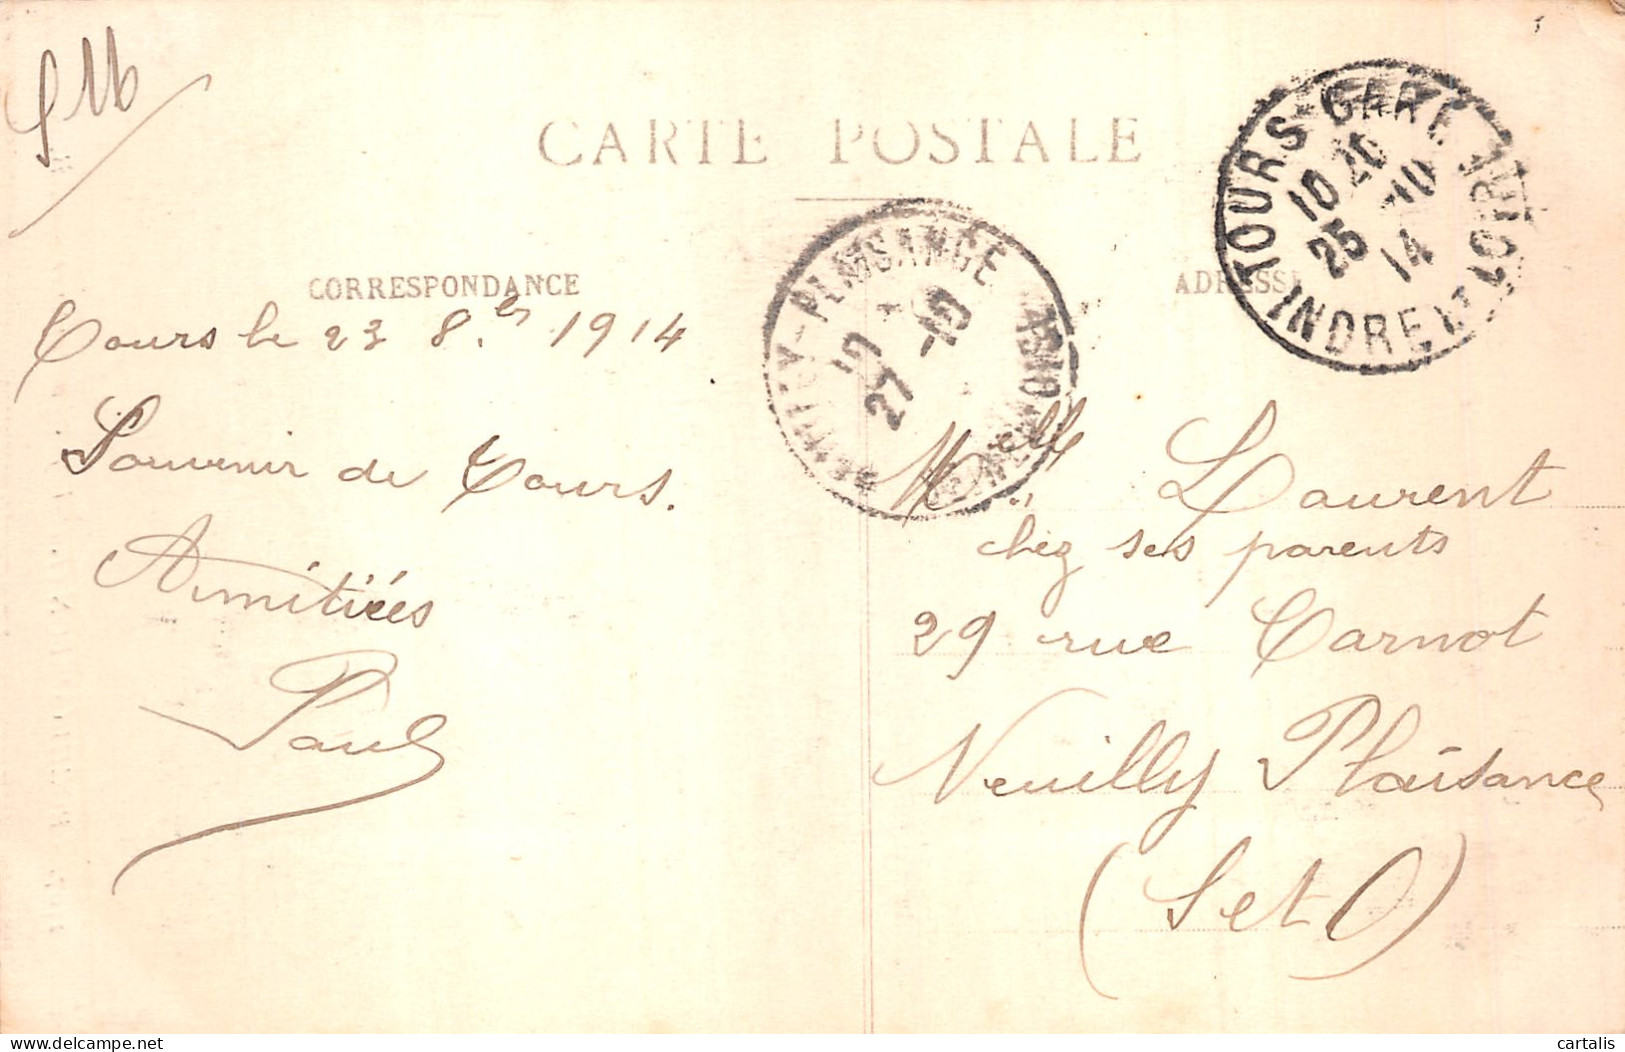 SM
CARTE POSTALE
TOURS-GARE
10 20
25 -10
14
INDRE ET LOIRE
NEUILLY-PLAISANCE
27 -10
SEINE-
CORRESPONDANCE
ADRESSE
Tours le 23 8.bre 1914
Souvenir de Tours.
Amitiées
Paul
Melle Laurent
chez ses parents
29 rue Carnot
Neuilly Plaisance
(S et O)
cartalis
delcampe.net